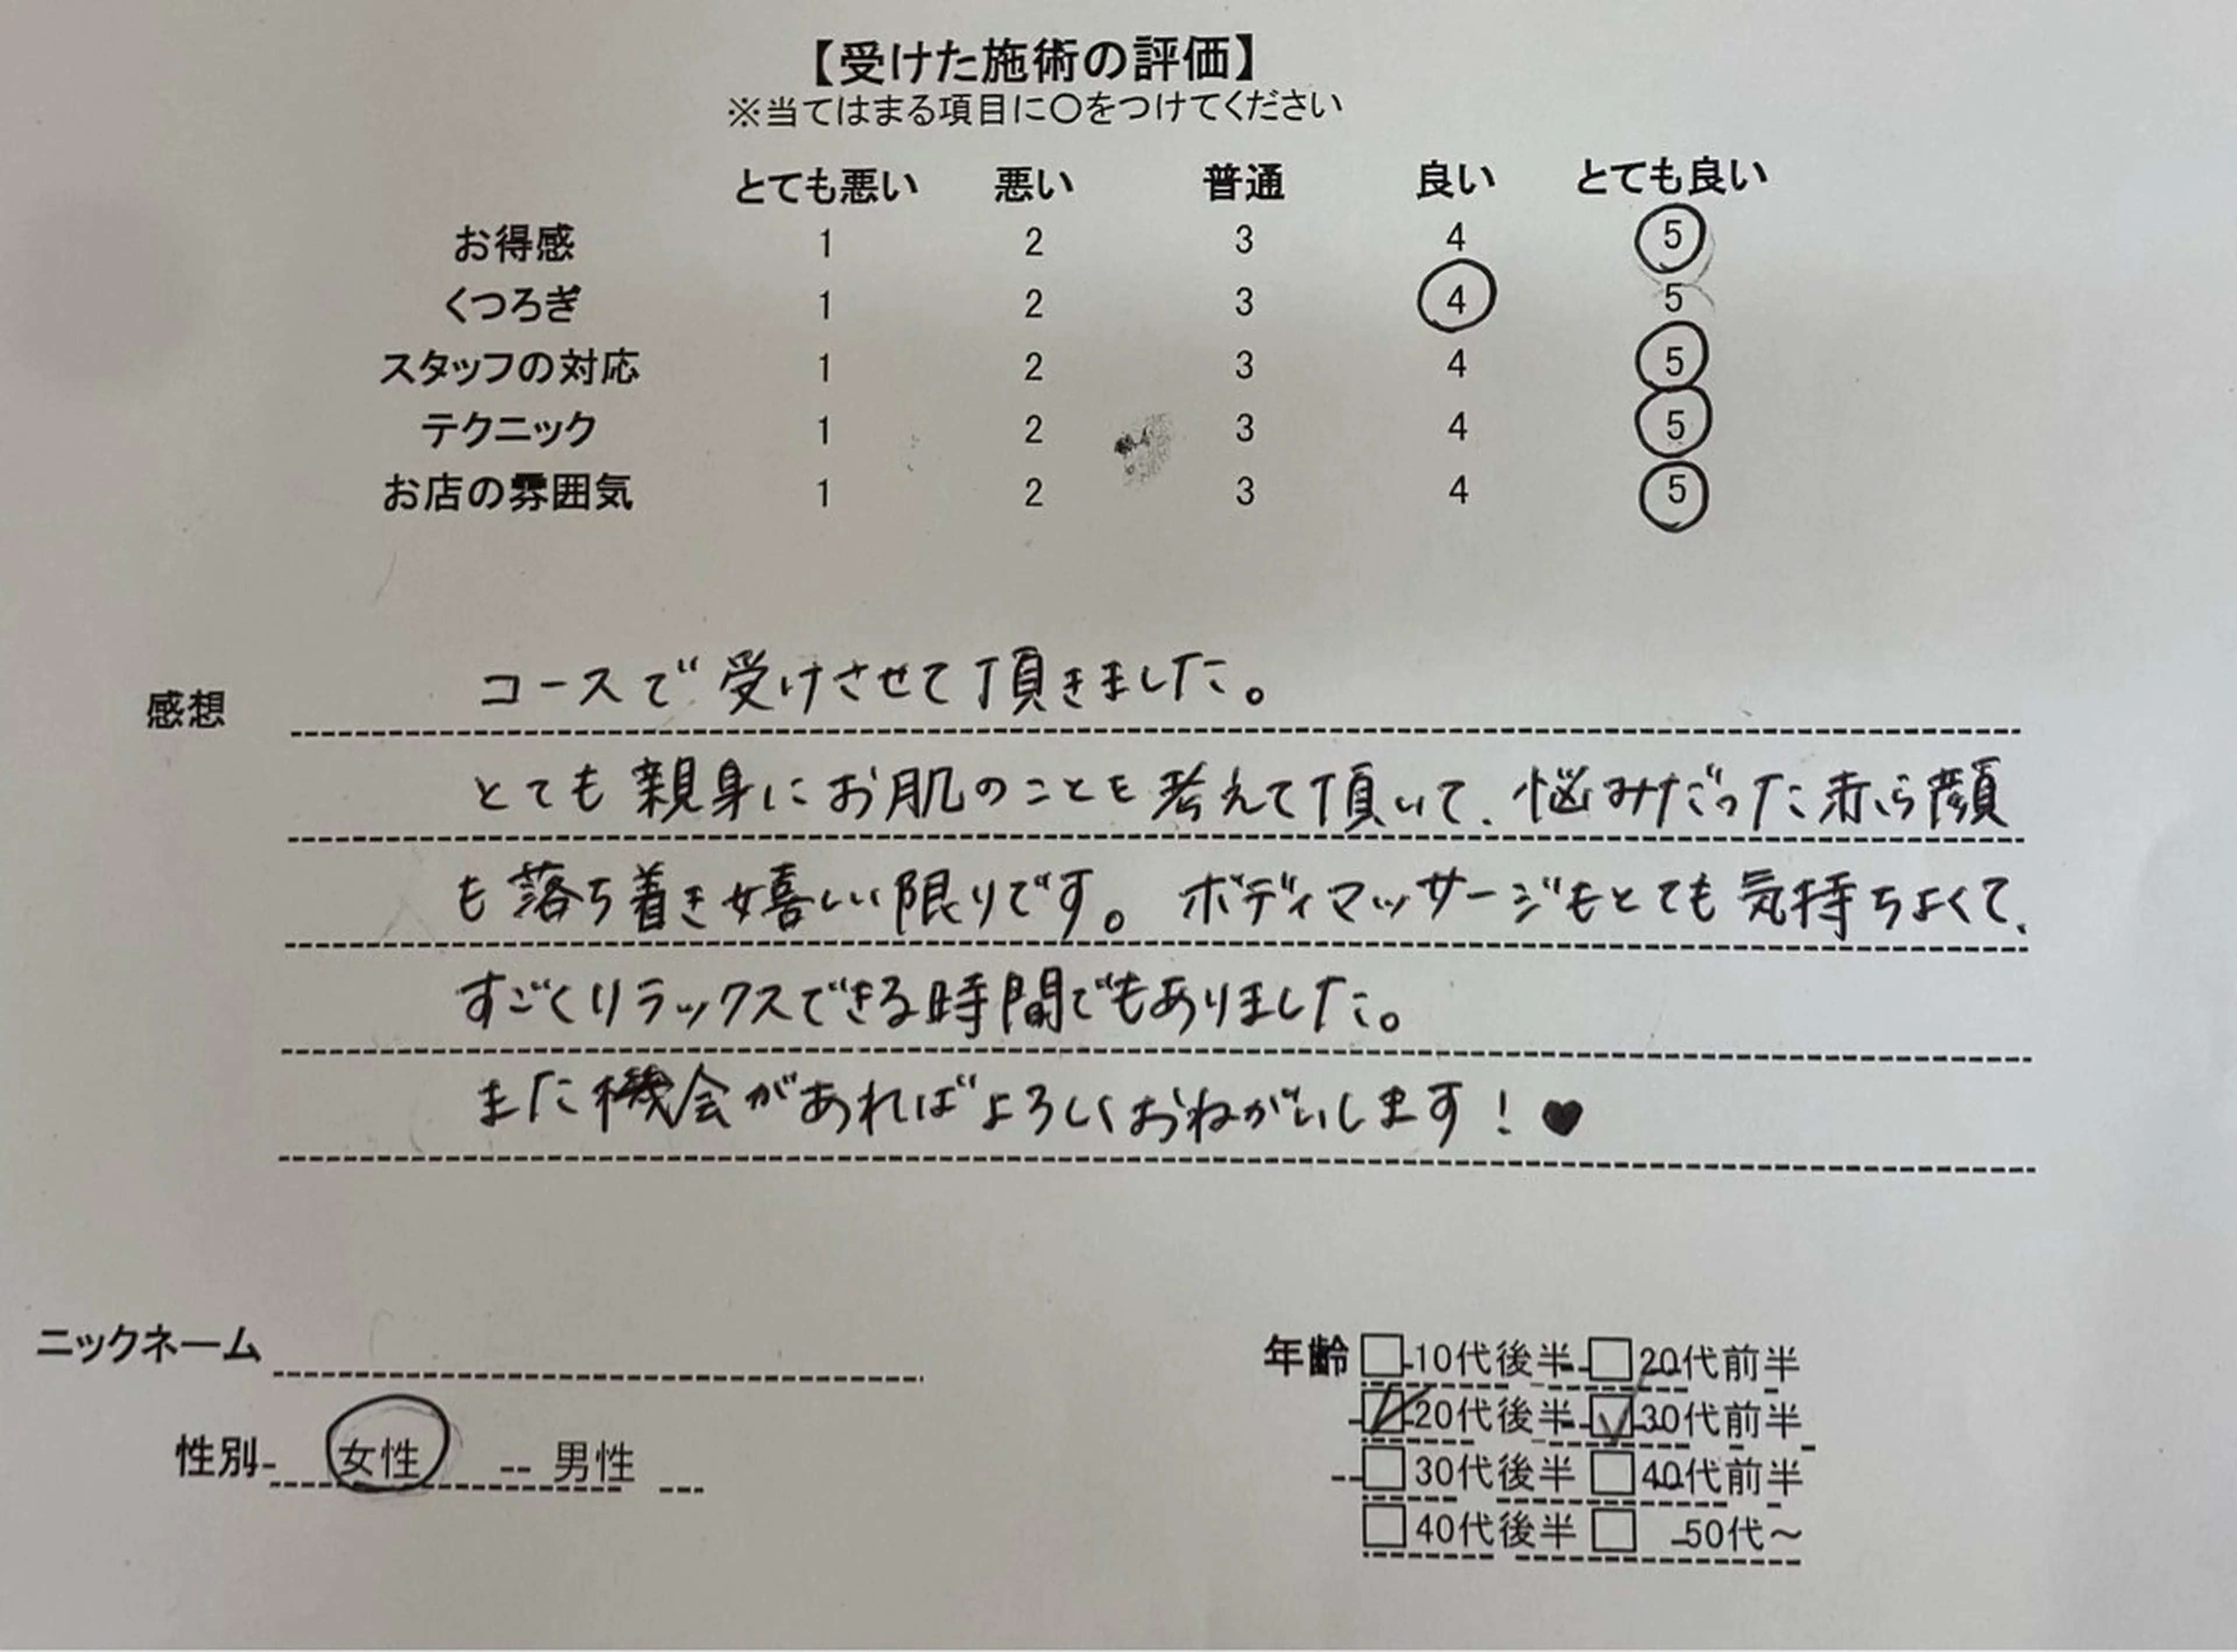 【受けた施術の評価】
※当てはまる項目に〇をつけてください
とても悪い 悪い 普通 良い とても良い
お得感 1 2 3 4 5
くつろぎ 1 2 3 4 5
スタッフの対応 1 2 3 4 5
テクニック 1 2 3 4 5
お店の雰囲気 1 2 3 4 5
コースで受けさせて頂きました。
感想
とても親身にお肌のことを考えて頂いて、悩みだった赤ら顔
も落ち着き嬉しい限りです。ボディマッサージもとても気持ちよくて、
すごくリラックスできる時間でもありました。
また機会があればよろしくおねがいします！♥
ニックネーム
性別 女性 男性
年齢 □10代後半 □20代前半
☑20代後半 ☑30代前半
□30代後半 □40代前半
□40代後半 □50代～